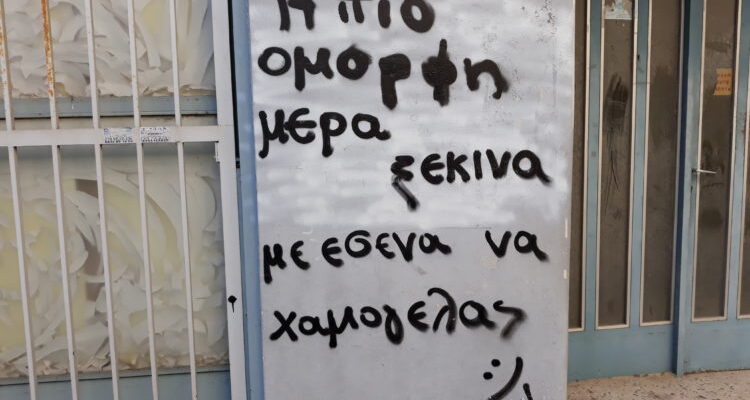 Η πιο
ομορφη
μερα
ξεκινα
με εσενα να
χαμογελας
:)